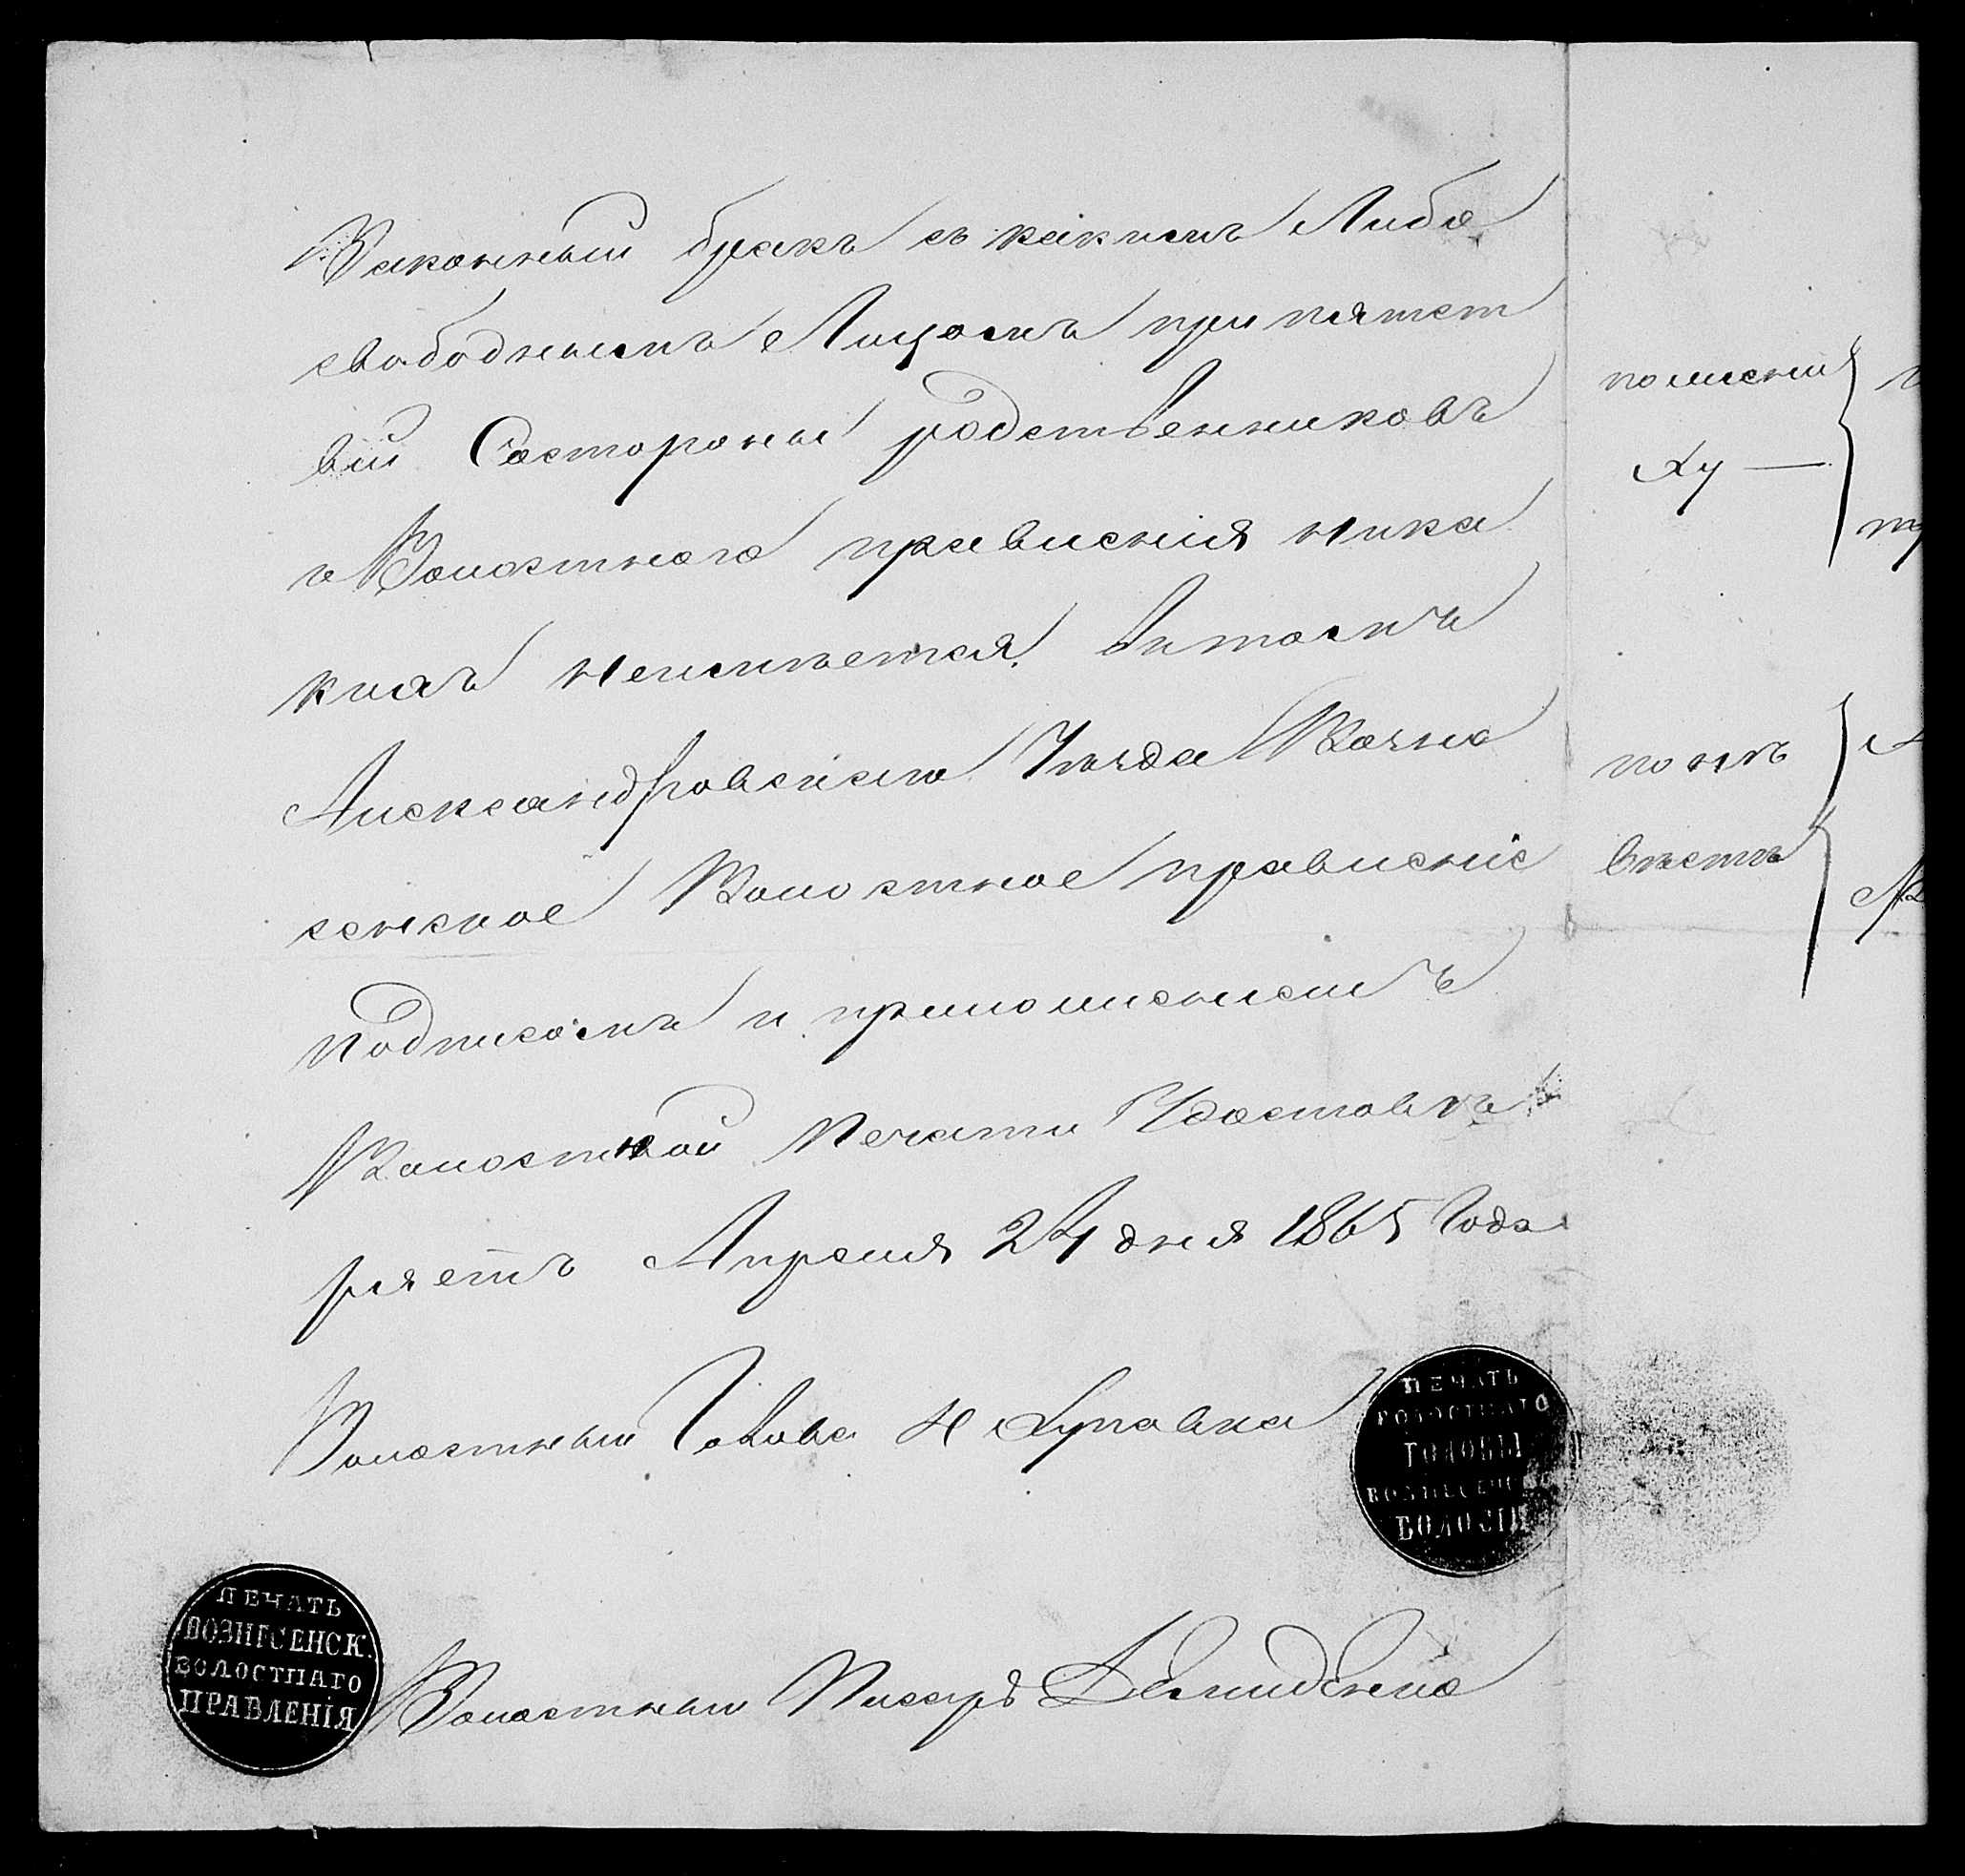 Законный бракъ съ какимъ Либо
свободнымъ Лицомъ припятст
вій Состороны родственниковъ
и Волостнаго правленія ника
кихъ неимѣется. Вътомъ
Александровскаго Уѣзда Возне
сенское Волостное правленіе
подписомъ и приложеніемъ
Волостной Печати Удостовѣ
ряетъ Апреля 24 дня 1865 Года
Волостный Голова
Волостный Писарь
ПЕЧАТЬ
ВОЛОСТНАГО
ГОЛОВЫ
ВОЗНЕСЕНСК
ВОЛОСТИ
ПЕЧАТЬ
ВОЗНЕСЕНСК.
ВОЛОСТНАГО
ПРАВЛЕНІЯ